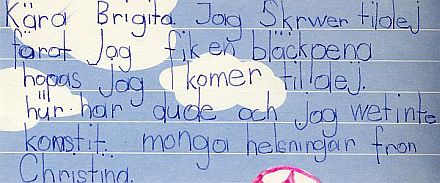 Kära Brigita Jag Skrwer tildej
färat jag fik en bläckpena
hopas jag komer tilldej.
hür har dude och jag wet inte
konstit. monga helsningar fron
Christina.